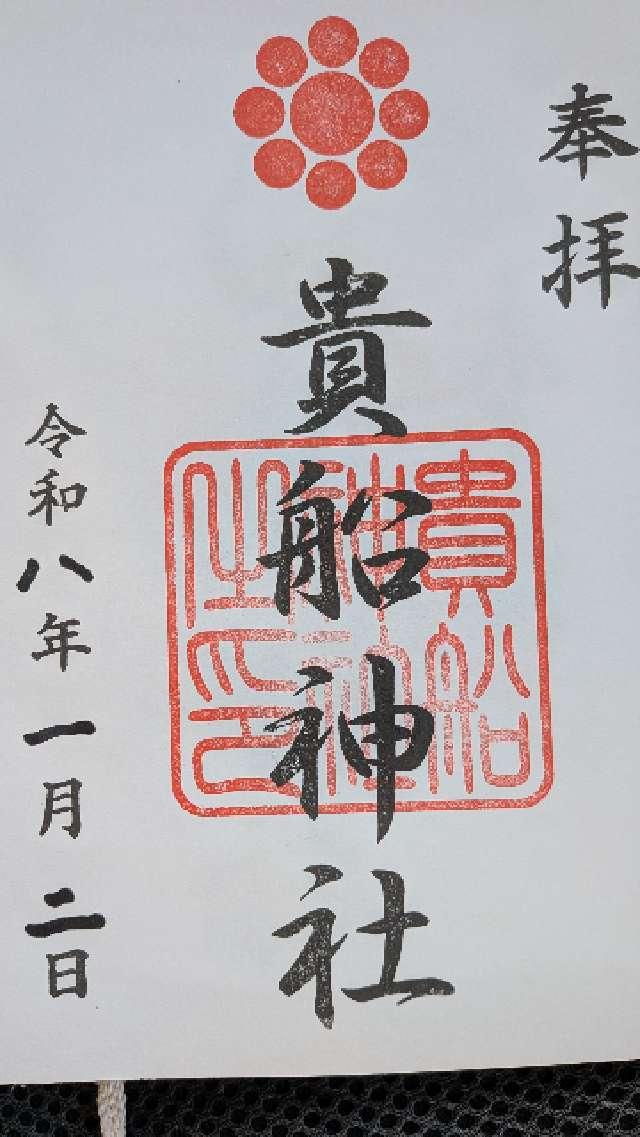 奉拝
貴船神社
貴船神社之印
令和八年一月二日